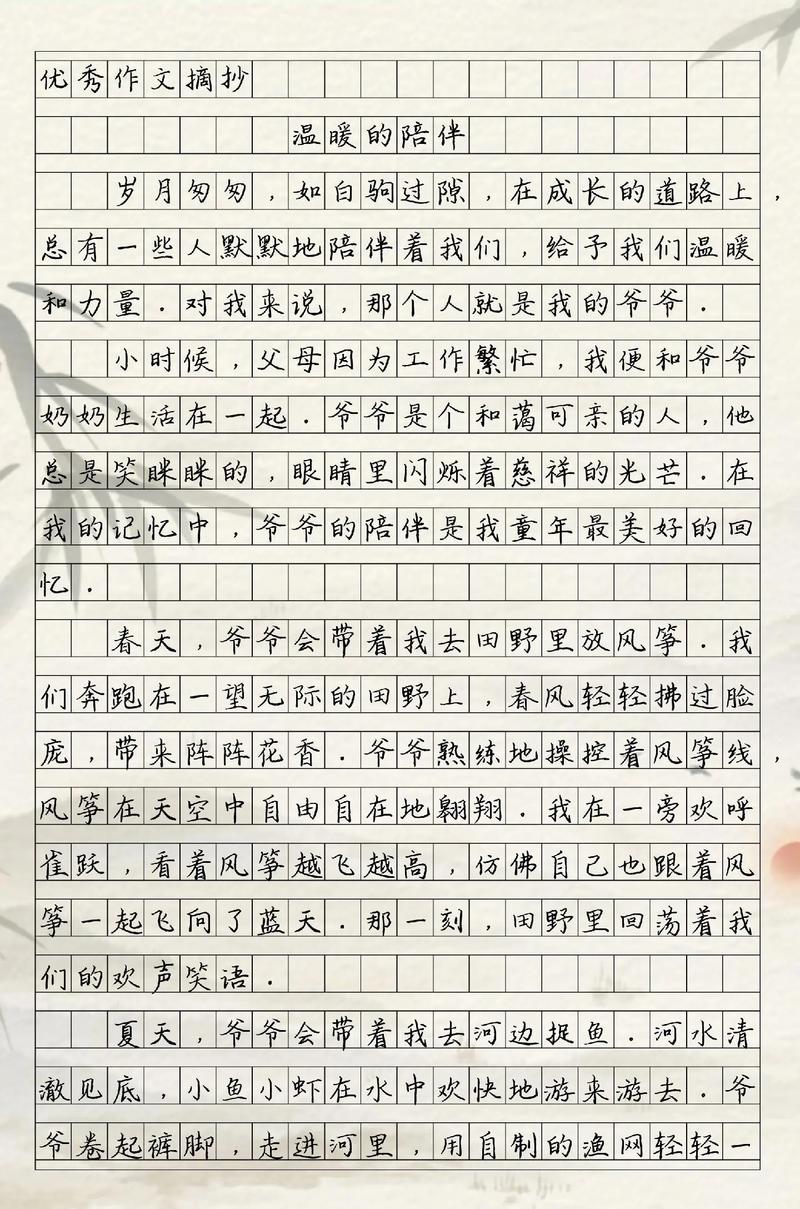 优秀作文摘抄
温暖的陪伴
岁月匆匆，如白驹过隙，在成长的道路上，
总有一些人默默地陪伴着我们，给予我们温暖
和力量．对我来说，那个人就是我的爷爷．
小时候，父母因为工作繁忙，我便和爷爷
奶奶生活在一起．爷爷是个和蔼可亲的人，他
总是笑眯眯的，眼睛里闪烁着慈祥的光芒．在
我的记忆中，爷爷的陪伴是我童年最美好的回
忆．
春天，爷爷会带着我去田野里放风筝．我
们奔跑在一望无际的田野上，春风轻轻拂过脸
庞，带来阵阵花香．爷爷熟练地操控着风筝线，
风筝在天空中自由自在地翱翔．我在一旁欢呼
雀跃，看着风筝越飞越高，仿佛自己也跟着风
筝一起飞向了蓝天．那一刻，田野里回荡着我
们的欢声笑语．
夏天，爷爷会带着我去河边捉鱼．河水清
澈见底，小鱼小虾在水中欢快地游来游去．爷
爷卷起裤脚，走进河里，用自制的渔网轻轻一